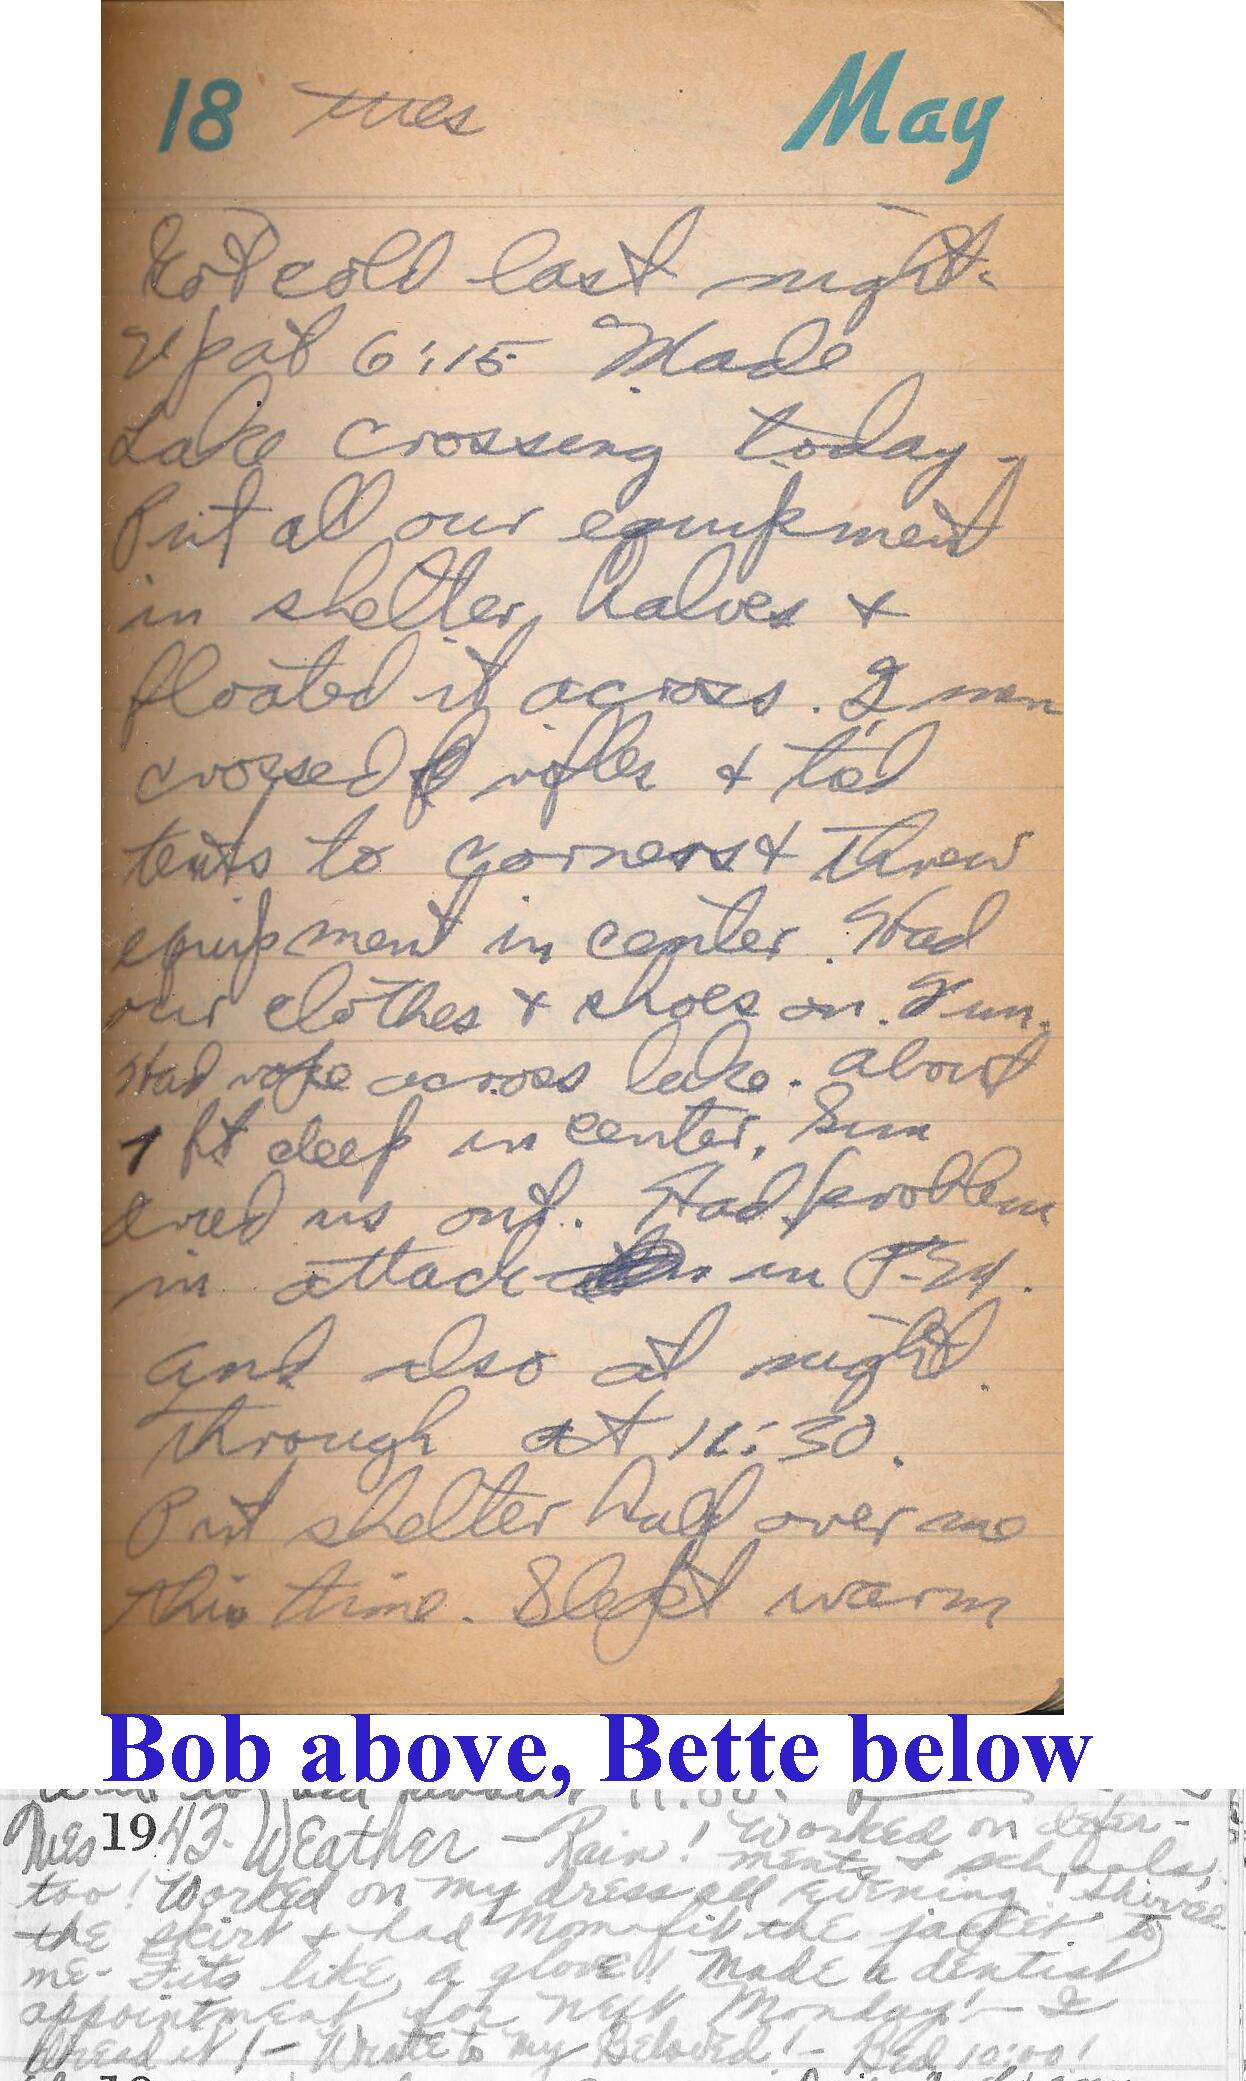 18 Tues May
Got cold last night.
Up at 6:15 Made
Lake crossing today.
Put all our equipment
in shelter halves &
floated it across. 2 men
crossed rifles & tied
tents to corners & threw
equipment in center. Had
our clothes & shoes on. Fun.
Had rope across lake. About
7 ft deep in center. Sun
dried us out. Had problem
in attack in P.M.
and also at night.
Through at 11:30.
Put shelter half over me
this time. Slept warm
Bob above, Bette below
11:00
Tues 1943. Weather - Rain! Worked on defer-
ments & schools,
too! Worked on my dress all evening! Shirred
the skirt & had Mom fit the jacket to
me - Fits like a glove! Made a dentist
appointment for next Monday! - I
dread it! - Wrote to my Beloved! - Bed 10:00!
19